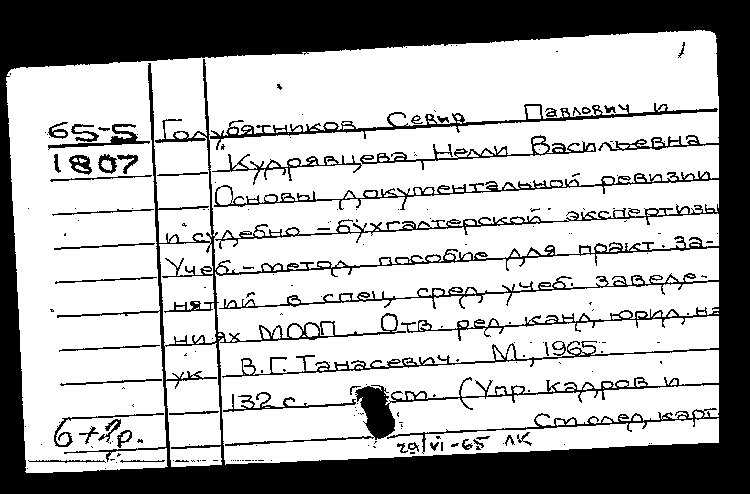 65-5 Голубятников, Севир Павлович и
1807 Кудрявцева, Нелли Васильевна
Основы документальной ревизии
и судебно-бухгалтерской экспертизы
Учеб.-метод. пособие для практ. за-
нятий в спец. сред. учеб. заведе-
ниях МООП. Отв. ред. канд. юрид. на
ук В.Г. Танасевич. М., 1965.
132 с. ст. (Упр. кадров и
См. след. карт
29/VI-65 ЛК